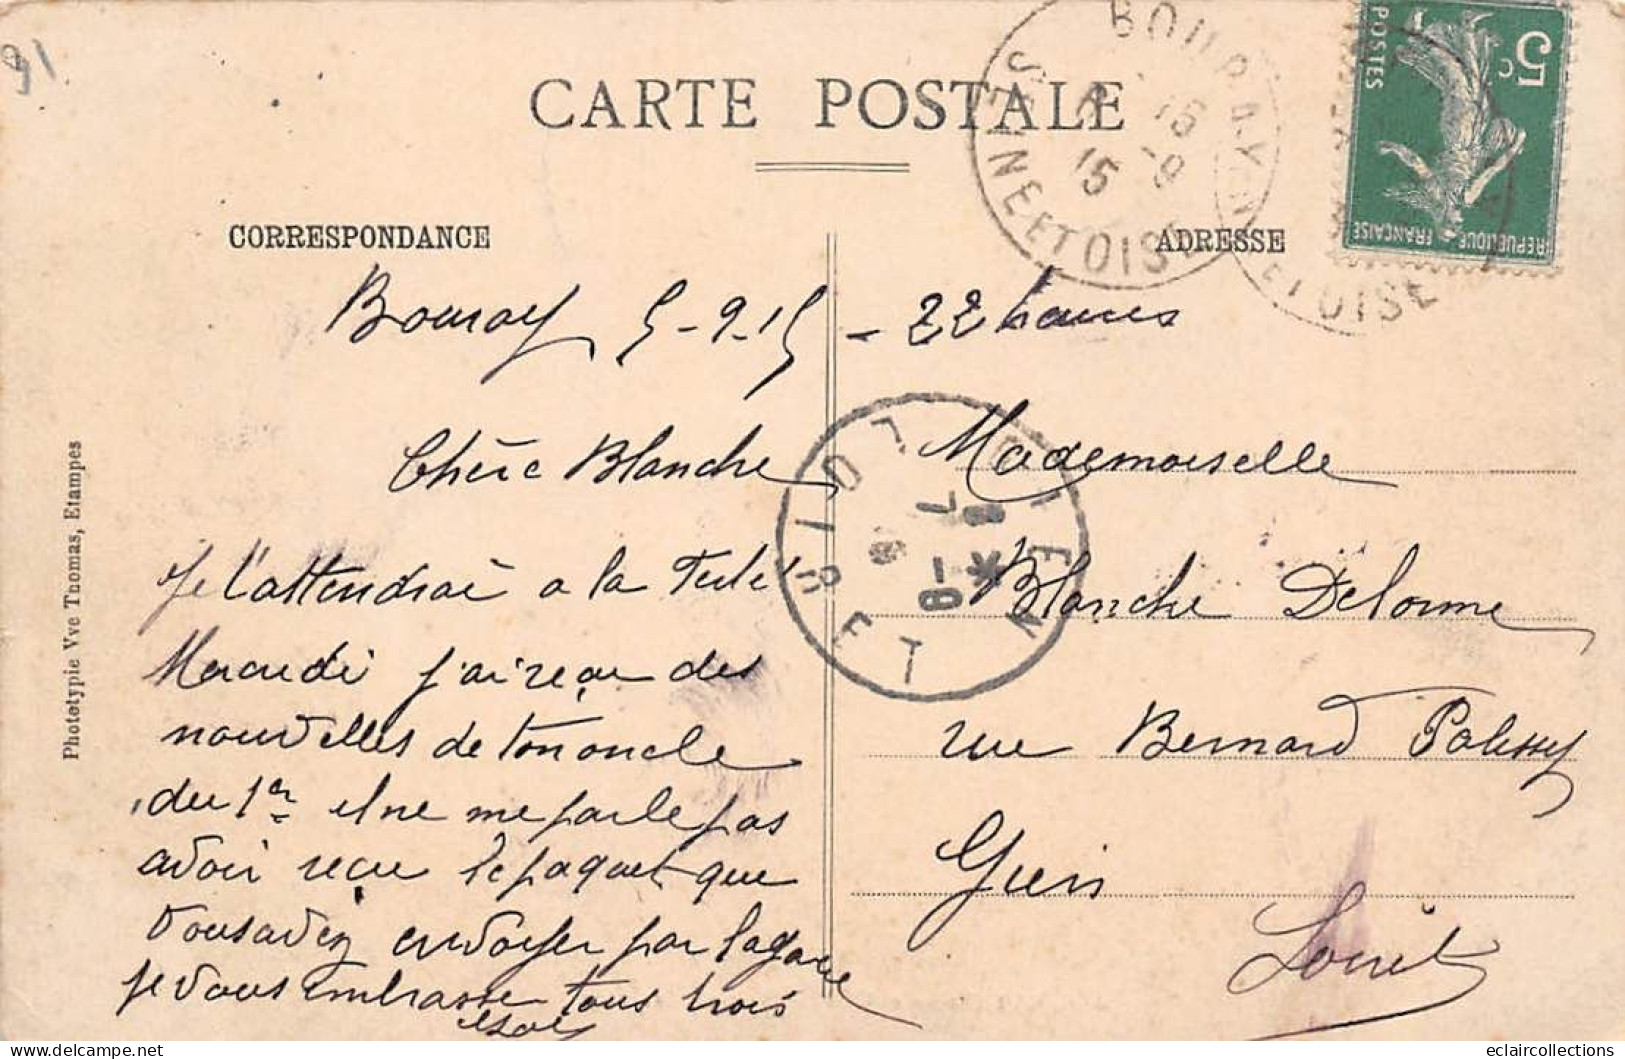 91
CARTE POSTALE
BOURAY
SEINE ET OISE
15
5c
POSTES
REPUBLIQUE FRANÇAISE
ET OISE
CORRESPONDANCE
ADRESSE
Bouray 5-9-15 - 22 heures
Chère Blanche
Je t'attendrai a la
Maradi j'ai reçu des
nouvelles de ton oncle
du 1er il ne me parle pas
avoir reçu le paquet que
vous avez envoyer par la gare
je vous embrasse tous trois
Mademoiselle
Blanche Delorme
rue Bernard Palissy
Gien
Loiret
GIEN
LOIRET
8-
7
*
Phototypie Vve Thomas, Etampes
eclaircollections